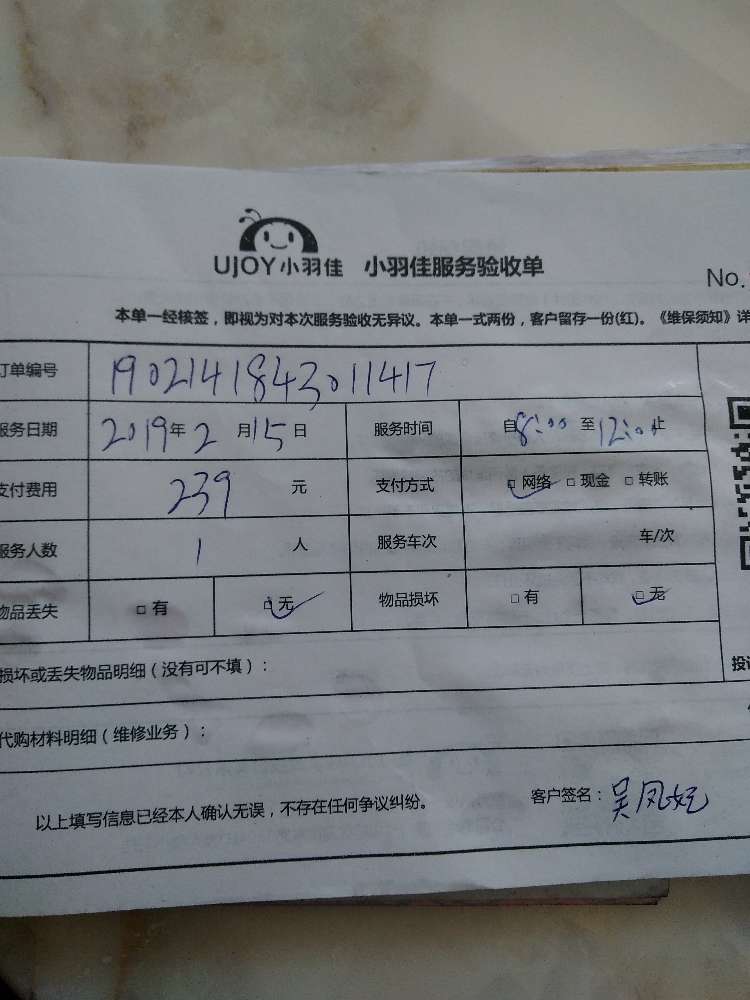 UJOY小羽佳 小羽佳服务验收单
No.
本单一经核签，即视为对本次服务验收无异议。本单一式两份，客户留存一份(红)。《维保须知》详
订单编号 1902141843011417
服务日期 2019年2月15日 服务时间 自8:00至12:00止
支付费用 239元 支付方式 □网络 □现金 □转账
服务人数 1人 服务车次 车/次
物品丢失 □有 □无 物品损坏 □有 □无
损坏或丢失物品明细（没有可不填）：
投诉
代购材料明细（维修业务）：
以上填写信息已经本人确认无误，不存在任何争议纠纷。 客户签名：吴凤妃